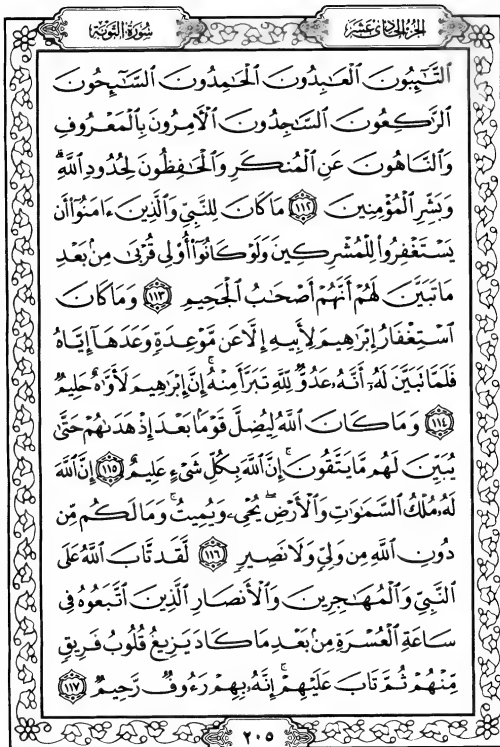 الجزء الحادى عشر
سورة التوبة
التَّٰٓئِبُونَ الْعَٰبِدُونَ الْحَٰمِدُونَ السَّٰٓئِحُونَ
الرَّٰكِعُونَ السَّٰجِدُونَ الْءَامِرُونَ بِالْمَعْرُوفِ
وَالنَّاهُونَ عَنِ الْمُنكَرِ وَالْحَٰفِظُونَ لِحُدُودِ اللَّهِ ۗ
وَبَشِّرِ الْمُؤْمِنِينَ ١١٢ مَا كَانَ لِلنَّبِيِّ وَالَّذِينَ ءَامَنُوٓا۟ أَن
يَسْتَغْفِرُوا۟ لِلْمُشْرِكِينَ وَلَوْ كَانُوٓا۟ أُو۟لِى قُرْبَىٰ مِنۢ بَعْدِ
مَا تَبَيَّنَ لَهُمْ أَنَّهُمْ أَصْحَٰبُ الْجَحِيمِ ١١٣ وَمَا كَانَ
اسْتِغْفَارُ إِبْرَٰهِيمَ لِأَبِيهِ إِلَّا عَن مَّوْعِدَةٍ وَعَدَهَآ إِيَّاهُ
فَلَمَّا تَبَيَّنَ لَهُۥٓ أَنَّهُۥ عَدُوٌّ لِّلَّهِ تَبَرَّأَ مِنْهُ ۚ إِنَّ إِبْرَٰهِيمَ لَأَوَّٰهٌ حَلِيمٌ
١١٤ وَمَا كَانَ اللَّهُ لِيُضِلَّ قَوْمًۢا بَعْدَ إِذْ هَدَىٰهُمْ حَتَّىٰ
يُبَيِّنَ لَهُم مَّا يَتَّقُونَ ۚ إِنَّ اللَّهَ بِكُلِّ شَىْءٍ عَلِيمٌ ١١٥ إِنَّ اللَّهَ
لَهُۥ مُلْكُ السَّمَٰوَٰتِ وَالْأَرْضِ ۖ يُحْىِۦ وَيُمِيتُ ۚ وَمَا لَكُم مِّن
دُونِ اللَّهِ مِن وَلِىٍّ وَلَا نَصِيرٍ ١١٦ لَّقَد تَّابَ اللَّهُ عَلَى
النَّبِىِّ وَالْمُهَٰجِرِينَ وَالْأَنصَارِ الَّذِينَ اتَّبَعُوهُ فِى
سَاعَةِ الْعُسْرَةِ مِنۢ بَعْدِ مَا كَادَ يَزِيغُ قُلُوبُ فَرِيقٍ
مِّنْهُمْ ثُمَّ تَابَ عَلَيْهِمْ ۚ إِنَّهُۥ بِهِمْ رَءُوفٌ رَّحِيمٌ ١١٧
٢٠٥